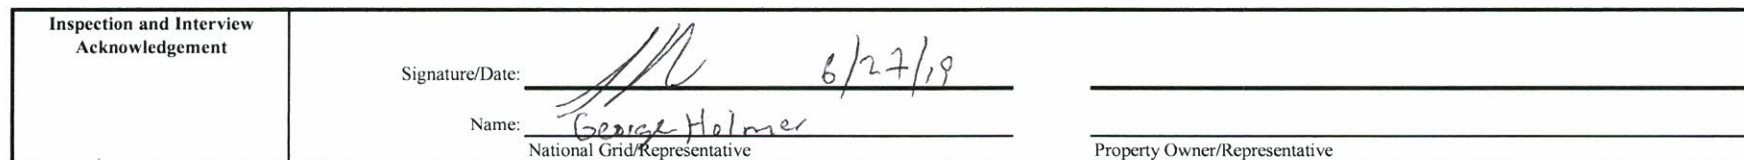 Inspection and Interview
Acknowledgement
Signature/Date: 6/27/19
Name: George Holmer
National Grid/Representative
Property Owner/Representative